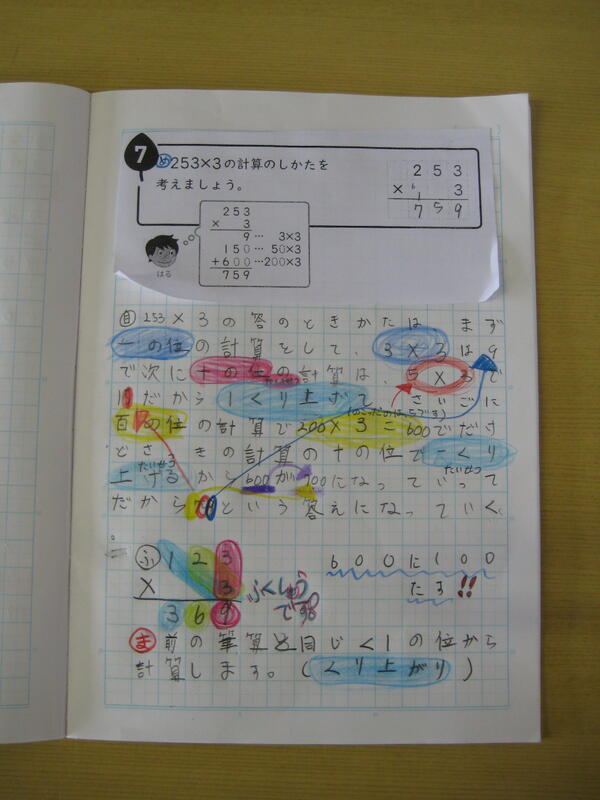 7 め 253×3の計算のしかたを
考えましょう。
253
× 3
9… 3×3
150… 50×3
+600…200×3
759
はる
2 5 3
× 6 1 3
7 5 9
自 253×3の答のときかたは、まず
一の位の計算をして、3×3は9
で次に十の位の計算は、5×3で
だから1くり上げて、さいごに
(のこったのは5です)
百の位の計算で200×3=600でだけ
どさっきの計算の十の位で一くり
たいせつ
上げるから600が700になっていって
たいせつ
だから という答えになっていく。
ふ 1 2 3
× 3
3 6 9
ふくしゅう
です。
600に100
たす!!
ま 前の筆算と同じく1の位から
計算します。(くり上がり)